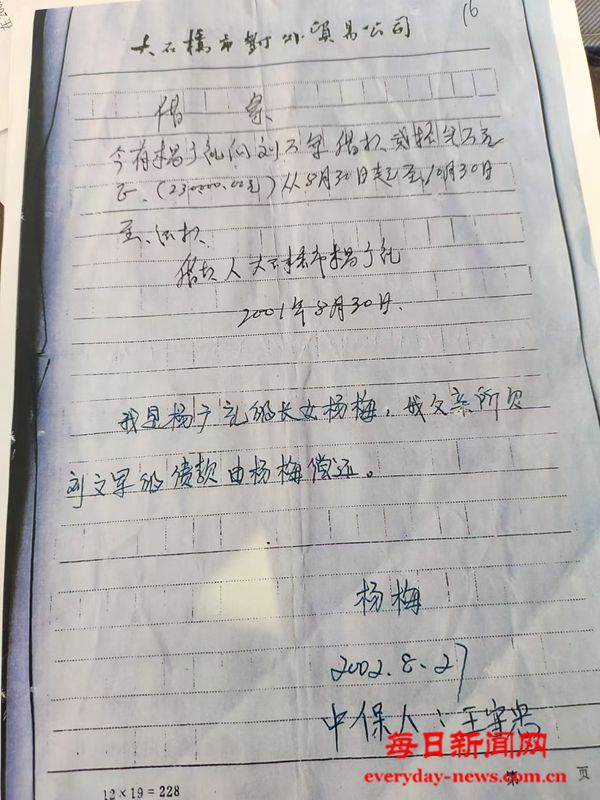 16
大石桥市對外貿易公司
借条
今有杨广礼向刘文军借款贰拾叁万元
正.(230000.00元)从8月30日起至10月30日
还款.
借款人大石桥市杨广礼
2001年8月30日.
我是杨广礼的长女杨梅,我父亲所欠
刘文军的债款由杨梅偿还。
杨梅
2002.8.27
中保人:王宝
每日新闻网
everyday-news.com.cn
12×19=228
第 页